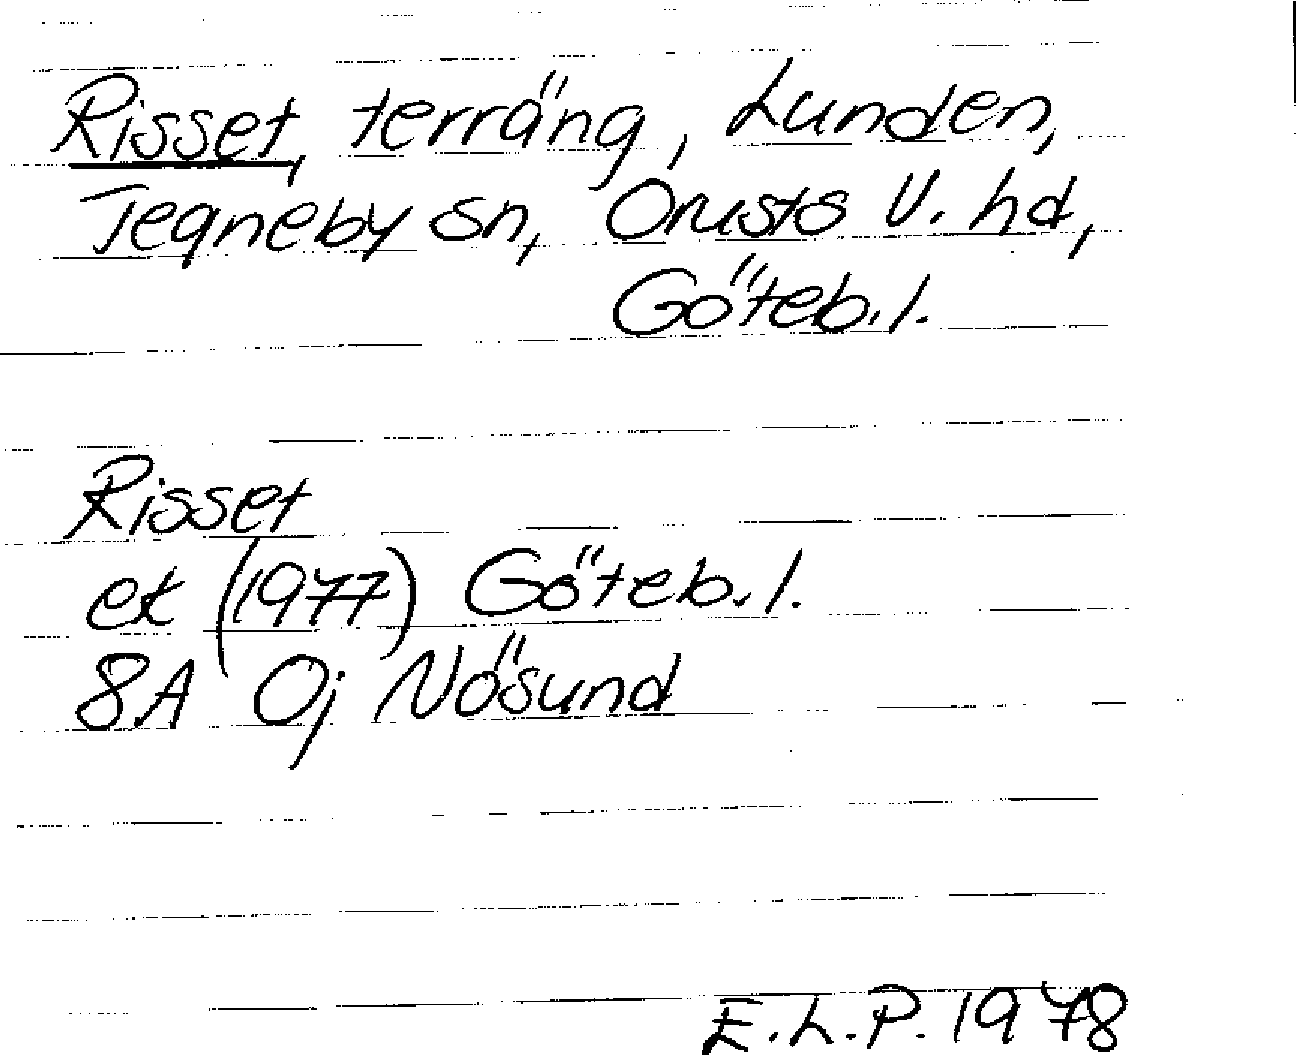 Risset, terräng, Lunden,
Tegneby sn, Orusts V. hd,
Göteb. l.
Risset
ek (1977) Göteb. l.
8A 0j Nösund
E.L.P. 1978